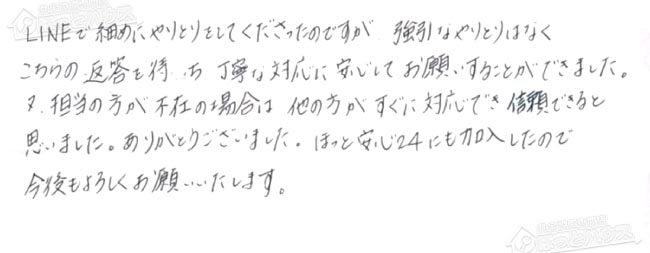 LINEで細めにやりとりをしてくださったのですが 強引なやりとりはなく
こちらの返答を待ち 丁寧な対応に安心してお願いすることができました。
又、担当の方が不在の場合は 他の方がすぐに対応でき 信頼できると
思いました。ありがとうございました。ほっと安心24にも加入したので
今後もよろしくお願いいたします。